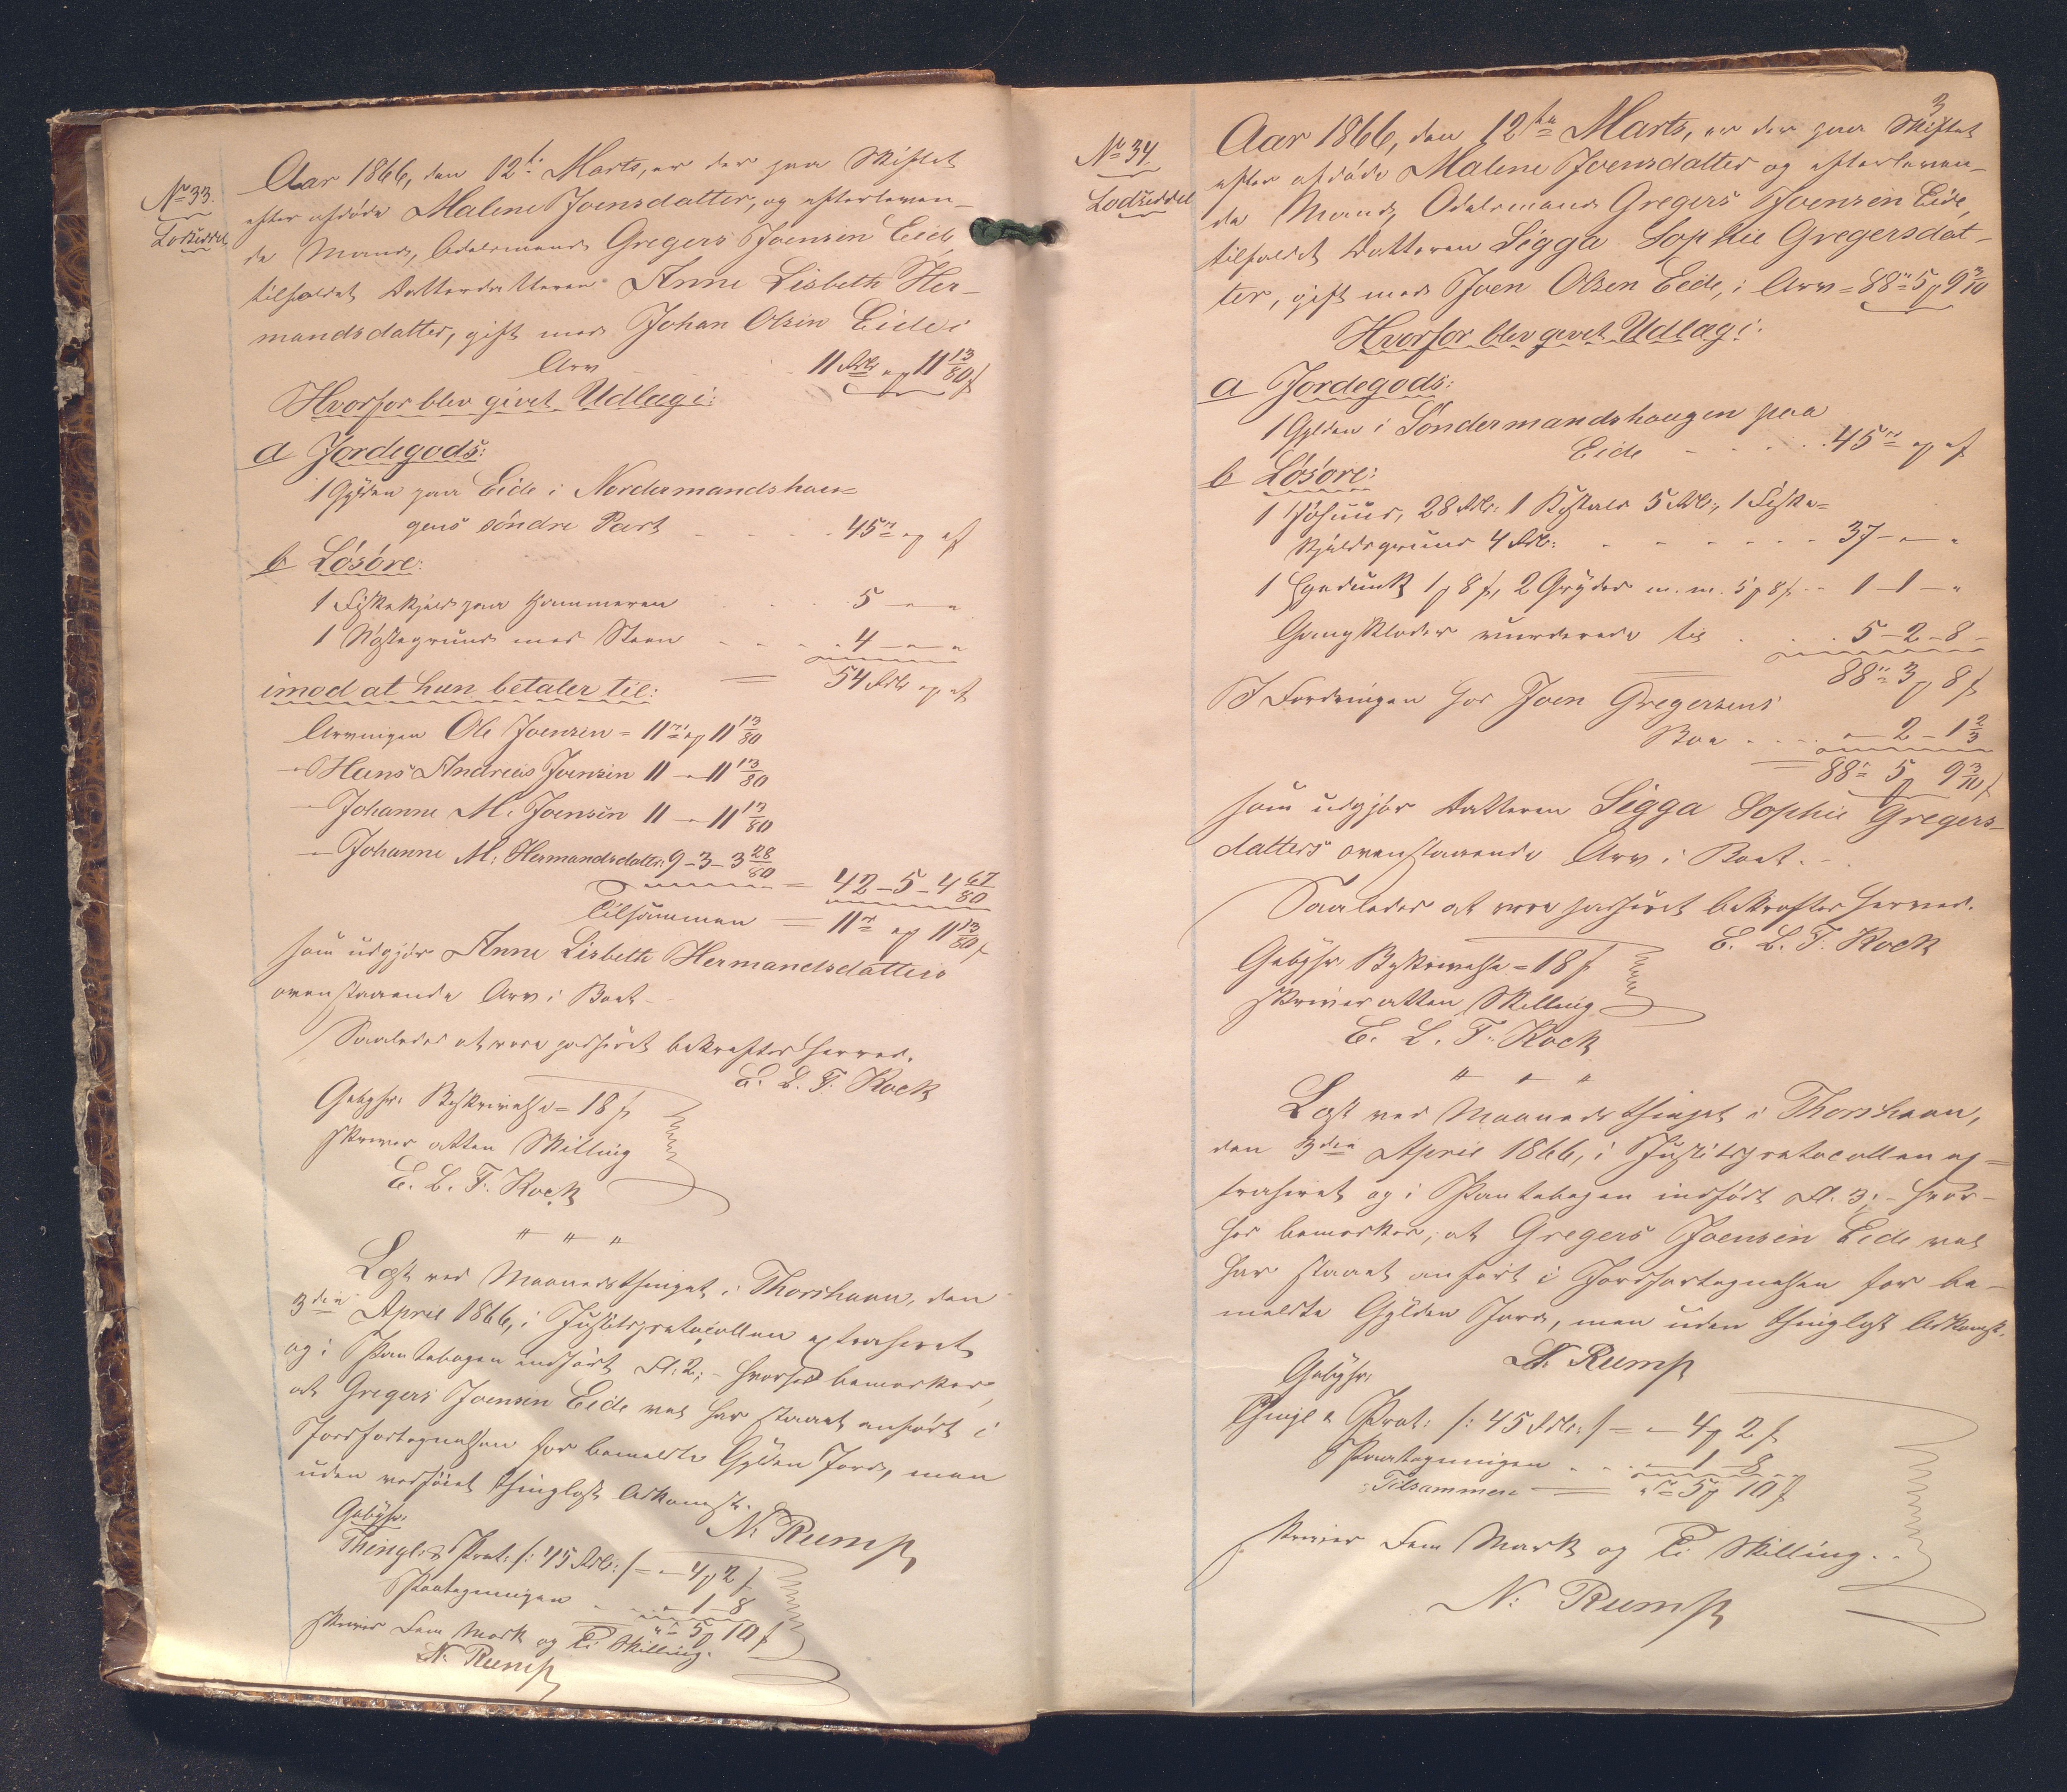 No 33.
Lodseddel
Aar 1866, den 12te Marts, er der paa Skiftet
efter afdøde Malene Joensdatter, og efterleven-
de Mand, Odelsmand Gregers Joensen Eide
tilfaldet Datterdatteren Anne Lisbeth Her-
mandsdatter, gift med Johan Olsen Eide i
Arv 11 Rdlr " p 11 13/80 f
Hvorfor blev givet Udlæg i:
a Jordegods:
1 Gylden paa Eide i Nordermandshau-
gens søndre Part - - - 45 rd " p " f
b Løsøre:
1 Fiskekjeld paa Hammeren 5 - " - "
1 Nøstegrund med Steen - - - 4 - " - "
= 54 Rdlr " p " f
imod at hun betaler til:
Arvingen Ole Joensen = 11 rd " p 11 13/80
- Hans Andreas Joensen 11 - " - 11 13/80
- Johanne M. Joensen 11 - " - 11 13/80
- Johanne M. Hermandsdatter 9 - 3 - 3 28/80
= 42 - 5 - 4 67/80
Tilsammen = 11 rd " p 11 13/80 f
som udgjør Anne Lisbeth Hermandsdatters
ovenstaaende Arv i Boet -
Saaledes at være passeret bekræftes herved.
E. L. T. Kock
Gebyhr. Beskrivelse = 18 f
skriver atten Skilling
E. L. T. Kock
" " "
Læst ved Maanedsthinget i Thorshavn, den
3die April 1866, i Justitsprotocollen extraheret
og i Pantebogen indført Fl. 2; - hvorhos bemærkes,
at Gregers Joensen Eide vel har staaet anført i
Jordfortegnelsen for bemeldte Gylden Jord, men
uden vedføiet thinglæst Adkomst.
N. Rump
Gebyhr.
Thingl. & Prot. /: 45 Rdlr :/ = " - 4 p 2 f
Paategningen - - " - 1 - 8
" = 5 p 10 f
skriver Fem Mark og Ti Skilling.
N. Rump
3
No 34
Lodseddel
Aar 1866, den 12te Marts, er der paa Skiftet
efter afdøde Malene Joensdatter og efterleven-
de Mand, Odelsmand Gregers Joensen Eide,
tilfaldet Datteren Sigga Sophie Gregersdat-
ter, gift med Joen Olsen Eide, i Arv = 88 rd 5 p 9 3/10
Hvorfor blev givet Udlæg i:
a Jordegods:
1 Gylden i Søndermandshaugen paa
Eide - - - 45 rd " p " f
b Løsøre:
28 Rdlr. 1 5 Rdlr., 1 Fiske-
kjeldsgrund 4 Rdlr. - - - - 37 - " - "
1 1 p 8 f, 2 Gryder m. m. 5 p 8 f - - 1 - 1 - "
Gangklæder vurderede til - - - 5 - 2 - 8 -
88 rd 3 p 8 f
I Fordringen hos Joen Gregersens
Boe - - - " - 2 - 1 2/3
= 88 rd 5 p 9 3/10 f
som udgjør Datteren Sigga Sophie Gregers-
datters ovenstaaende Arv i Boet. -
Saaledes at være passeret bekræftes herved.
E. L. T. Kock
Gebyhr. Beskrivelse = 18 f
skriver atten Skilling
E. L. T. Kock
" " "
Læst ved Maanedsthinget i Thorshavn,
den 3die April 1866, i Justitsprotocollen ex-
traheret og i Pantebogen indført Fl. 3; - hvor-
hos bemærkes, at Gregers Joensen Eide vel
har staaet anført i Jordfortegnelsen for be-
meldte Gylden Jord, men uden thinglæst Adkomst.
N. Rump
Gebyhr.
Thingl. & Prot: /: 45 Rdlr :/ = " - 4 p 2 f
Paategningen - - " - 1 - 8
Tilsammen = " rd 5 p 10 f
skriver Fem Mark og Ti Skilling. -
N. Rump